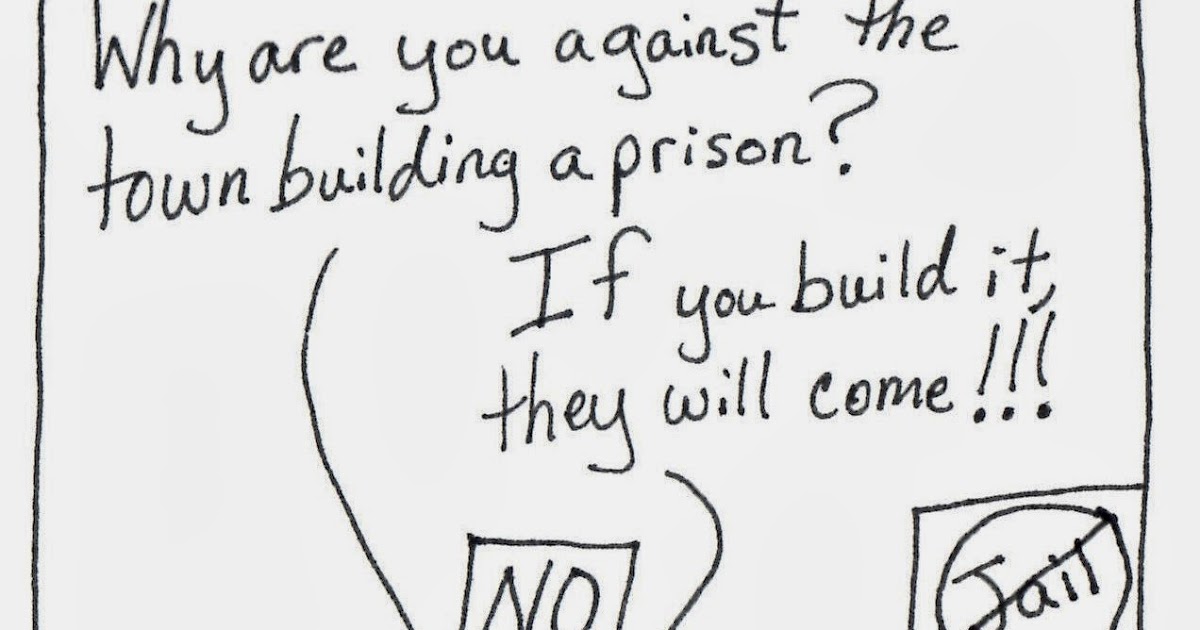 Why are you against the
town building a prison?
If you build it,
they will come!!!
NO
Jail